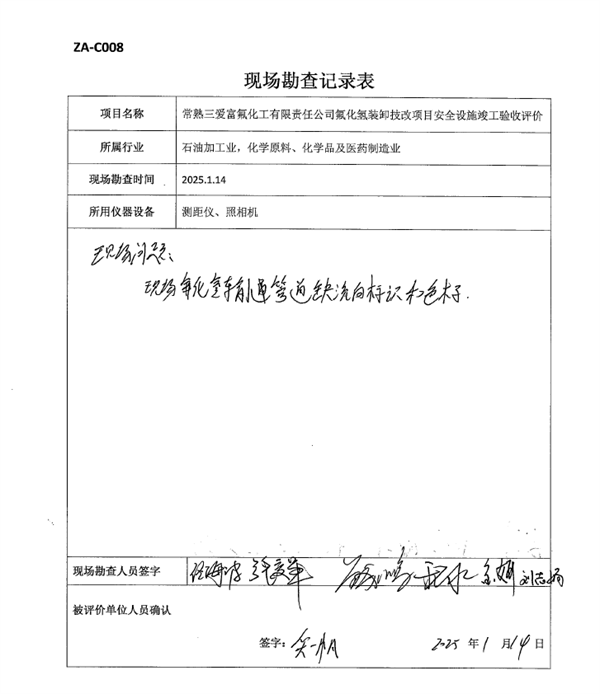 ZA-C008
现场勘查记录表
项目名称 常熟三爱富氟化工有限责任公司氟化氢装卸技改项目安全设施竣工验收评价
所属行业 石油加工业，化学原料、化学品及医药制造业
现场勘查时间 2025.1.14
所用仪器设备 测距仪、照相机
现场问题：
现场氟化氢输送管道缺流向标识和色标.
现场勘查人员签字
被评价单位人员确认
签字： 2025 年 1 月 14 日